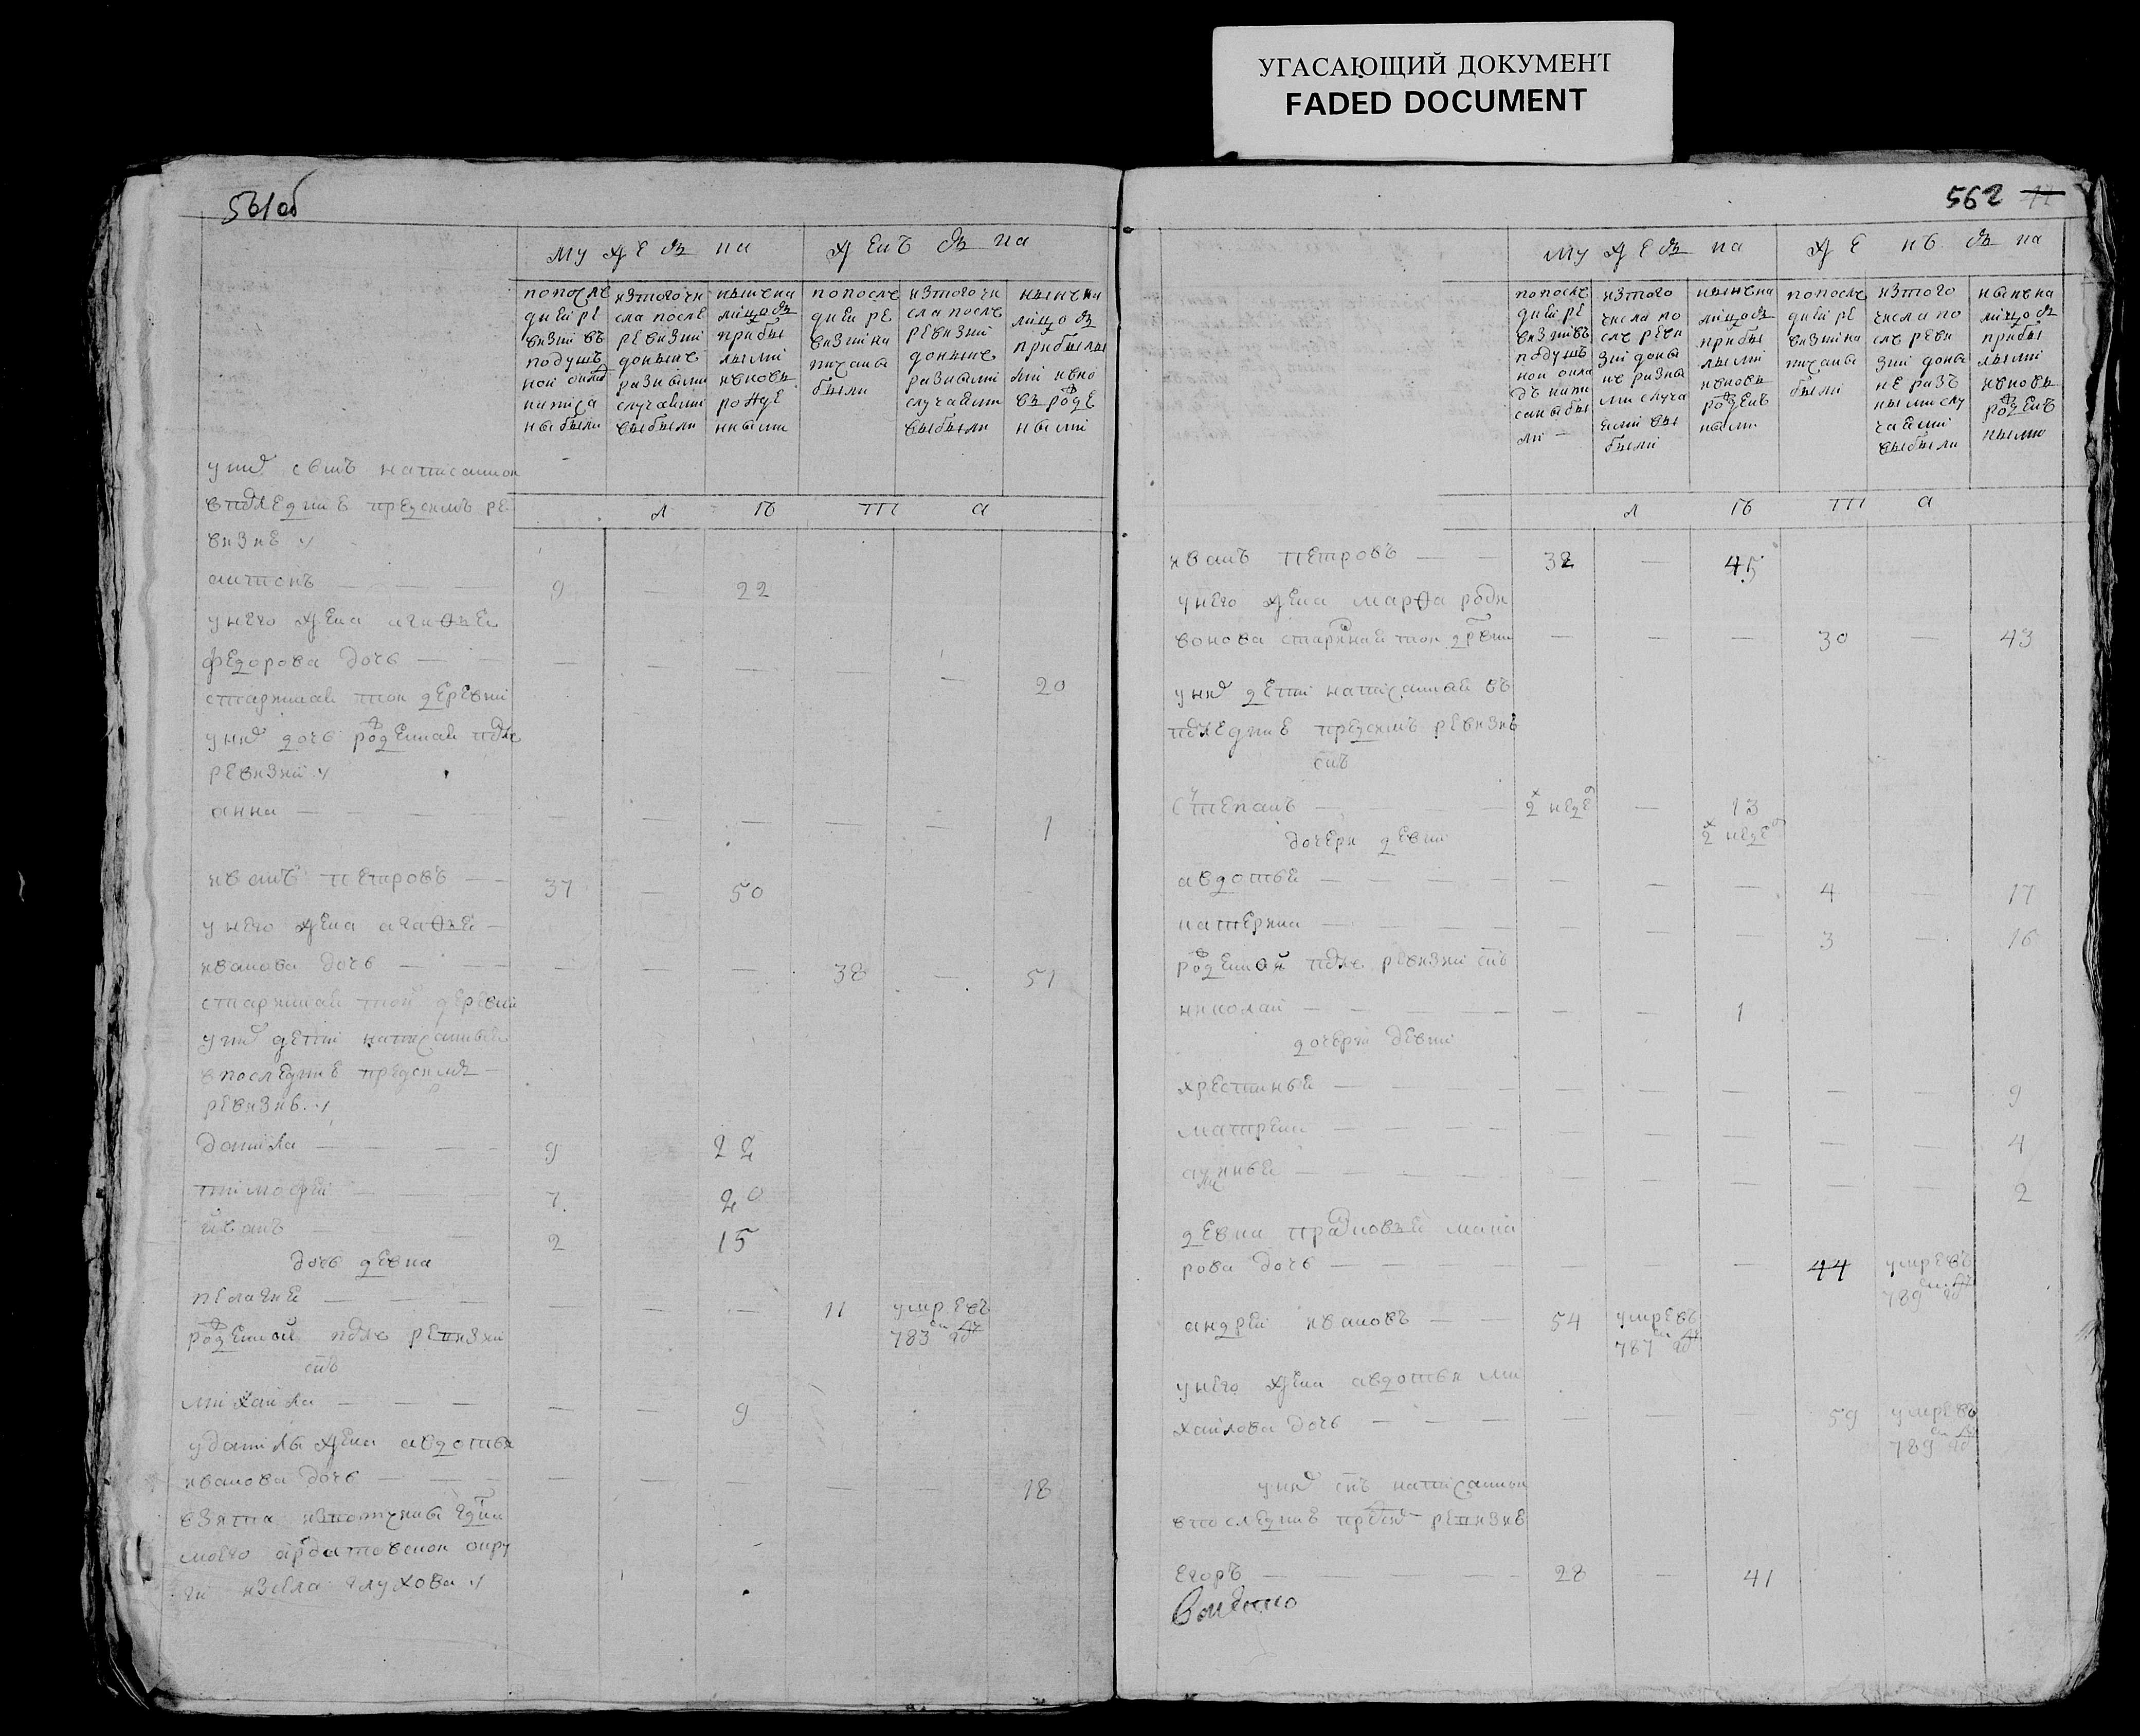 УГАСАЮЩИЙ ДОКУМЕНТ
FADED DOCUMENT
561об
муже ска
женъ ска
попослѣ
дней ре
визии въ
подушъ
ной окла
написа
ны были
изтого чи
сла после
ревизии
донынѣ
разными
случаями
выбыли
нынѣ на
лицо съ
прибы
лыми
и вновь
рожде
нными
попослѣ
дней ре
визии на
писаны
были
изтого чи
сла послѣ
ревизии
донынѣ
разными
случаями
выбыли
нынѣ на
лицо съ
прибылы
ми ивно
вь рожде
ными
л ѣ т а
у них сынъ написанной
впоследнѣ предсимъ ре
визие
антонъ 9 — 22
унего жена
федорова дочь — — — — — 20
старинная той деревни
у них дочь рожденная после
ревизии
анна — — — — — 1
иванъ петровъ 37 — 50
унего жена агафья
иванова дочь — — — 38 — 51
старинная той деревни
у них дети написанныя
впоследнѣ предсимъ
ревизиѣ
данила 9 22
тимофей 7 20
иванъ 2 15
дочь девка
пелагия — — — 11 умре въ
783м году
рожденной после ревизии
сынъ
михаила — — 9
уданилы жена авдотья
иванова дочь — — — — — 18
взята
ардатовской окру
ги изсела глухова
562 42
муже ска
же нъ ска
попослѣ
дней ре
визии въ
подушъ
ной окла
дъ напи
саны бы
ли
изтого
числа по
слѣ реви
зии доны
не разны
ми случа
ями вы
были
нынѣ на
лицо съ
прибы
лыми
ивновь
рожден
ными
попослѣ
дней ре
визии на
писаны
были
изтого
числа по
слѣ реви
зии доны
не раз
ными слу
чаями
выбыли
нынѣ на
лицо съ
прибы
лыми
ивновь
рожден
ными
л ѣ т а
иванъ петровъ 32 — 45
унего жена марфа роди
вонова старинная той деревни — — — 30 — 43
у них дети написанныя въ
последнѣ предсимъ ревизиѣ
сынъ
степанъ 2х неде — 13
2х неде
дочери девки
авдотья — — — 4 17
катерина — 3 — 16
рожденной после ревизии сынъ
николай — — 1
дочери девки
хрестинья — — — — — 9
матрена — — — — — 4
— — — — — 2
девка прасковья мака
рова дочь — 44 умре въ
789м году
андрей ивановъ 54 умре въ
787м году
унего жена авдотья ми
хайлова дочь — — — 59 умре въ
789м году
у них сынъ написанной
впоследнѣ пред сим ревизиѣ
егоръ 28 — 41